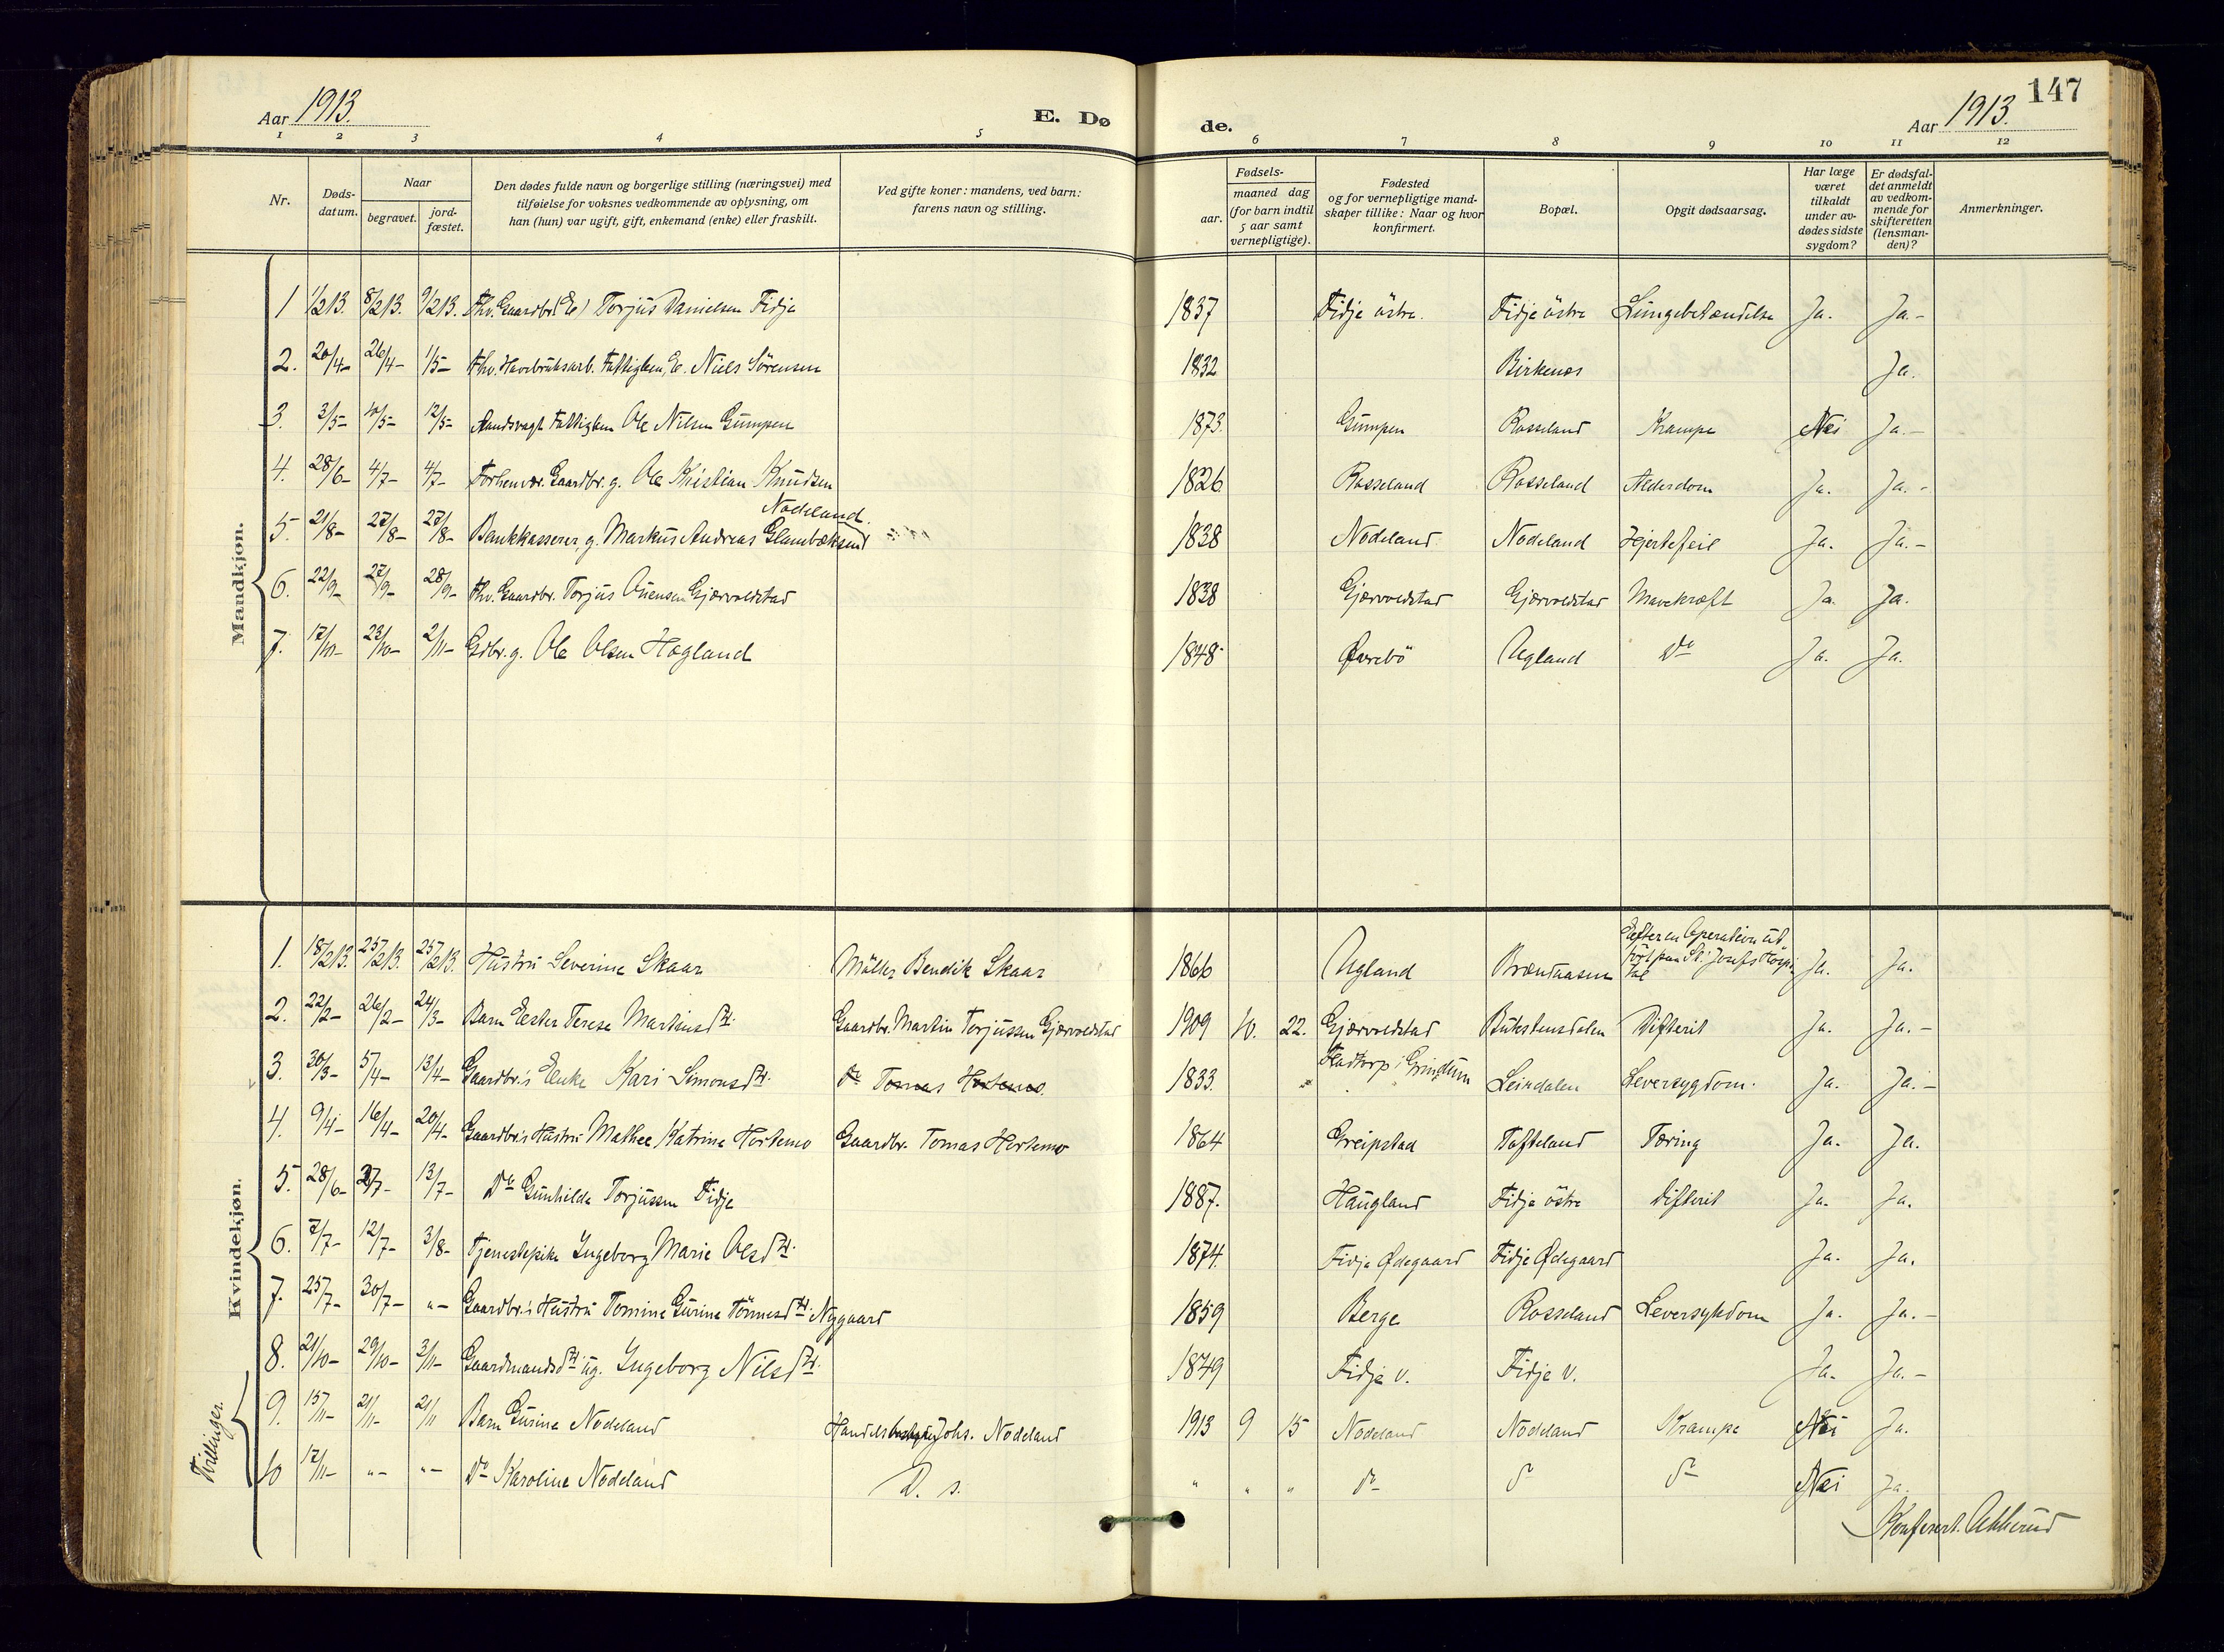 147
Aar 1913.
E. Dø
de.
Aar 1913.
1 2 3 4 5 6 7 8 9 10 11 12
Nr.
Døds-datum.
Naar
begravet.
jord-fæstet.
Den dødes fulde navn og borgerlige stilling (næringsvei) med
tilføielse for voksnes vedkommende av oplysning, om
han (hun) var ugift, gift, enkemand (enke) eller fraskilt.
Ved gifte koner: mandens, ved barn:
farens navn og stilling.
Fødsels-
aar.
maaned dag
(for barn indtil
5 aar samt
vernepligtige).
Fødested
og for vernepligtige mand-
skaper tillike: Naar og hvor
konfirmert.
Bopæl.
Opgit dødsaarsag.
Har læge
været
tilkaldt
under av-
dødes sidste
sygdom?
Er dødsfal-
det anmeldt
av vedkom-
mende for
skifteretten
(lensman-
den)?
Anmerkninger.
Mandkjøn.
1 1/2 13. 8/2 13. 9/2 13. Fhv. Gaardbr. (E) Torjus Danielsen Fidje 1837 Fidje östre. Fidje östre Lungebetændelse Ja. Ja.-
2. 20/4- 26/4- 1/5- Fhv. Fattiglem, E. Niels Sörensen 1832 Birkenes Ja.
3. 3/5- 10/5- 12/5- Fattiglem Ole Nilsen Gumpen 1873. Gumpen Rosseland Krampe Nei Ja.-
4. 28/6- 4/7- 4/7- Forhenvr. Gaardbr. g. Ole Kristian Knudsen 1826. Rosseland Rosseland Alderdom Ja. Ja.-
Nodeland.
5. 21/8- 27/8- 27/8- Bankkasserer, g. Markus Andreas 1838 Nodeland Nodeland Hjertefeil Ja. Ja.-
6. 22/9- 27/9- 28/9- Fhv. Gaardbr. Torjus Auensen Gjærvoldstad 1838 Gjærvoldstad Gjærvoldstad Mavekræft Ja. Ja.
7. 17/10- 23/10- 2/11- Gdbr. g. Ole Olsen Hagland 1848- Øvrebö Ugland Do Ja. Ja.
Kvindekjøn.
1. 18/2 13. 25/2 13. 25/2 13. Hustru Severine Skaar Möller Bendik Skaar 1866 Ugland Brændaasen Efter en Operation ud-
fört paa St. Josefs Hospi-
tal Ja. Ja.
2. 22/2- 26/2- 24/3- Barn Ester Terese Martinsdtr. Gaardbr. Martin Torjussen Gjærvoldstad 1909 10. 22. Gjærvoldstad Bukstensdalen Difterit Ja. Ja.-
3. 30/3- 5/4- 13/4- Gaardbr.'s Enke Kari Simonsdtr. Do Tomas Hortemo. 1833. Leirdalen Leversygdom. Ja. Ja.-
4. 9/4- 16/4- 20/4- Gaardbr's Hustru Mathee Katrine Hortemo Gaardbr. Tomas Hortemo 1864 Greipstad Tofteland Tæring Ja. Ja.
5. 28/6- 3/7- 13/7- Do Gunhilde Torjussen Fidje 1887. Haugland Fidje östre Difterit Ja. Ja.
6. 7/7- 12/7- 3/8- Tjenestepike Ingeborg Marie Olsdtr. 1874. Fidje Ødegaard Fidje Ødegaard Ja. Ja.
7. 25/7- 30/7- "- Gaardbr.'s Hustru Tomine Gurine Tönnesdtr. Nygaard 1859 Berge Rosseland Leversykdom Ja. Ja.-
8. 21/10- 29/10- 3/11- Gaardmandsdtr ug. Ingeborg Nilsdtr. 1849 Fidje v. Fidje v. Ja. Ja.-
Tvillinger.
9. 15/11- 21/11- 21/11 Barn Gurine Nodeland Johs. Nodeland 1913 9 15 Nodeland Nodeland Krampe Nei Ja.
10 17/11- "- "- Do Karoline Nodeland D. s. " " " do do do Nei Ja.
Konferert. Akkerud